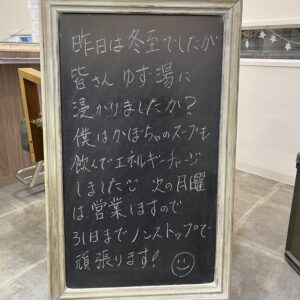 昨日は冬至でしたが
皆さん ゆず湯に
浸かりましたか?
僕はかぼちゃのスープも
飲んでエネルギーチャージ
しました 次の月曜
は営業しますので
31日までノンストップで
頑張ります!